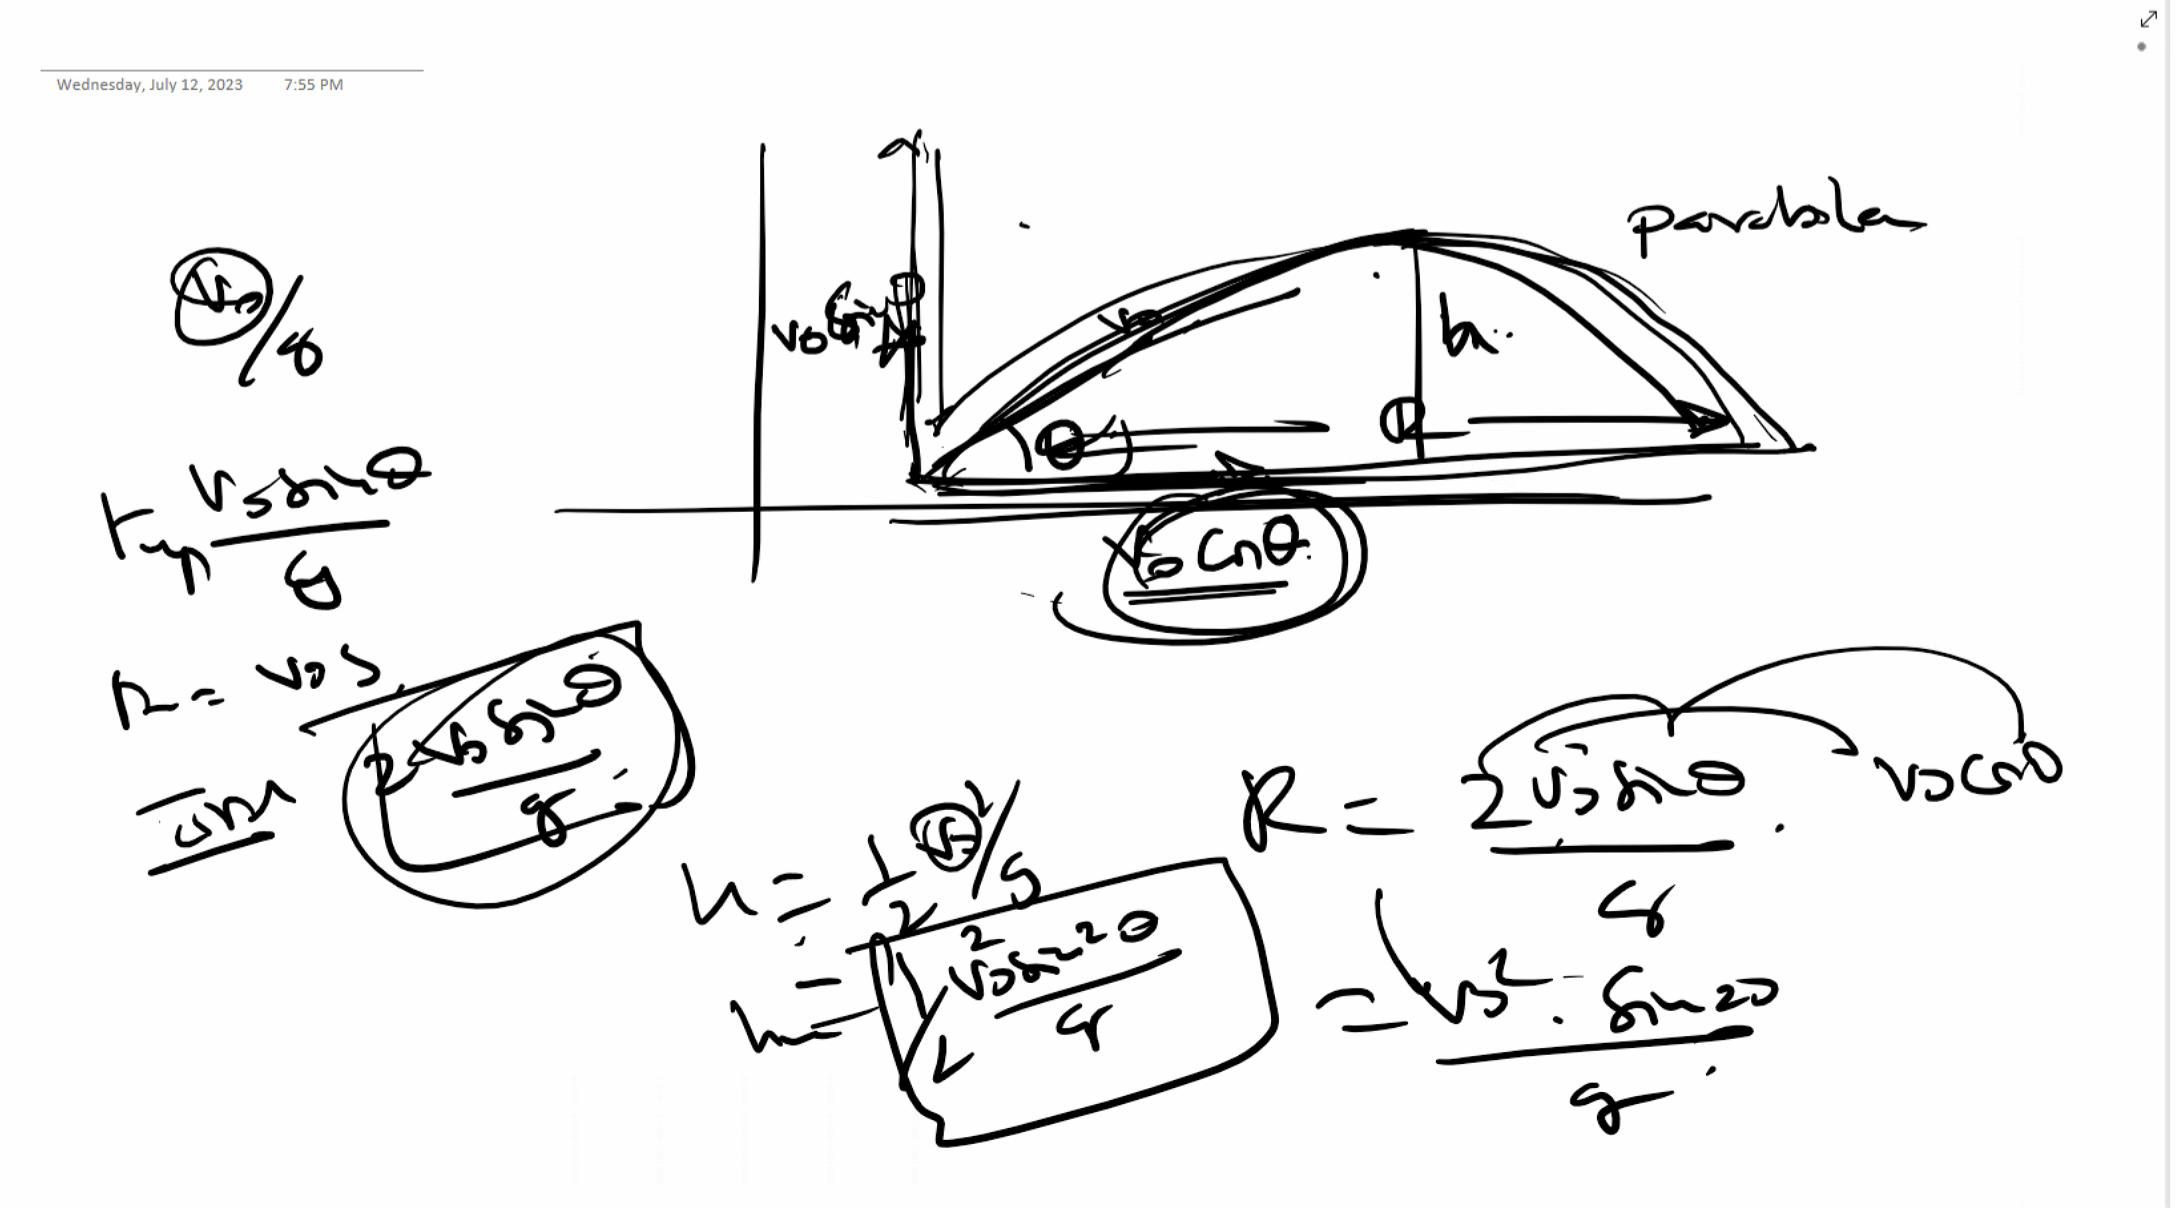 Wednesday, July 12, 2023 7:55 PM
parabola
v₀/g
v₀ sinθ
v₀
h
θ
v₀ cosθ
t_up v₀ sinθ / g
R = v₀
2 v₀ sinθ / g
h = 1/2 v₀² / g
h = 1/2 v₀² sin²θ / g
R = 2 v₀ sinθ / g . v₀ cosθ
= v₀² . sin2θ / g